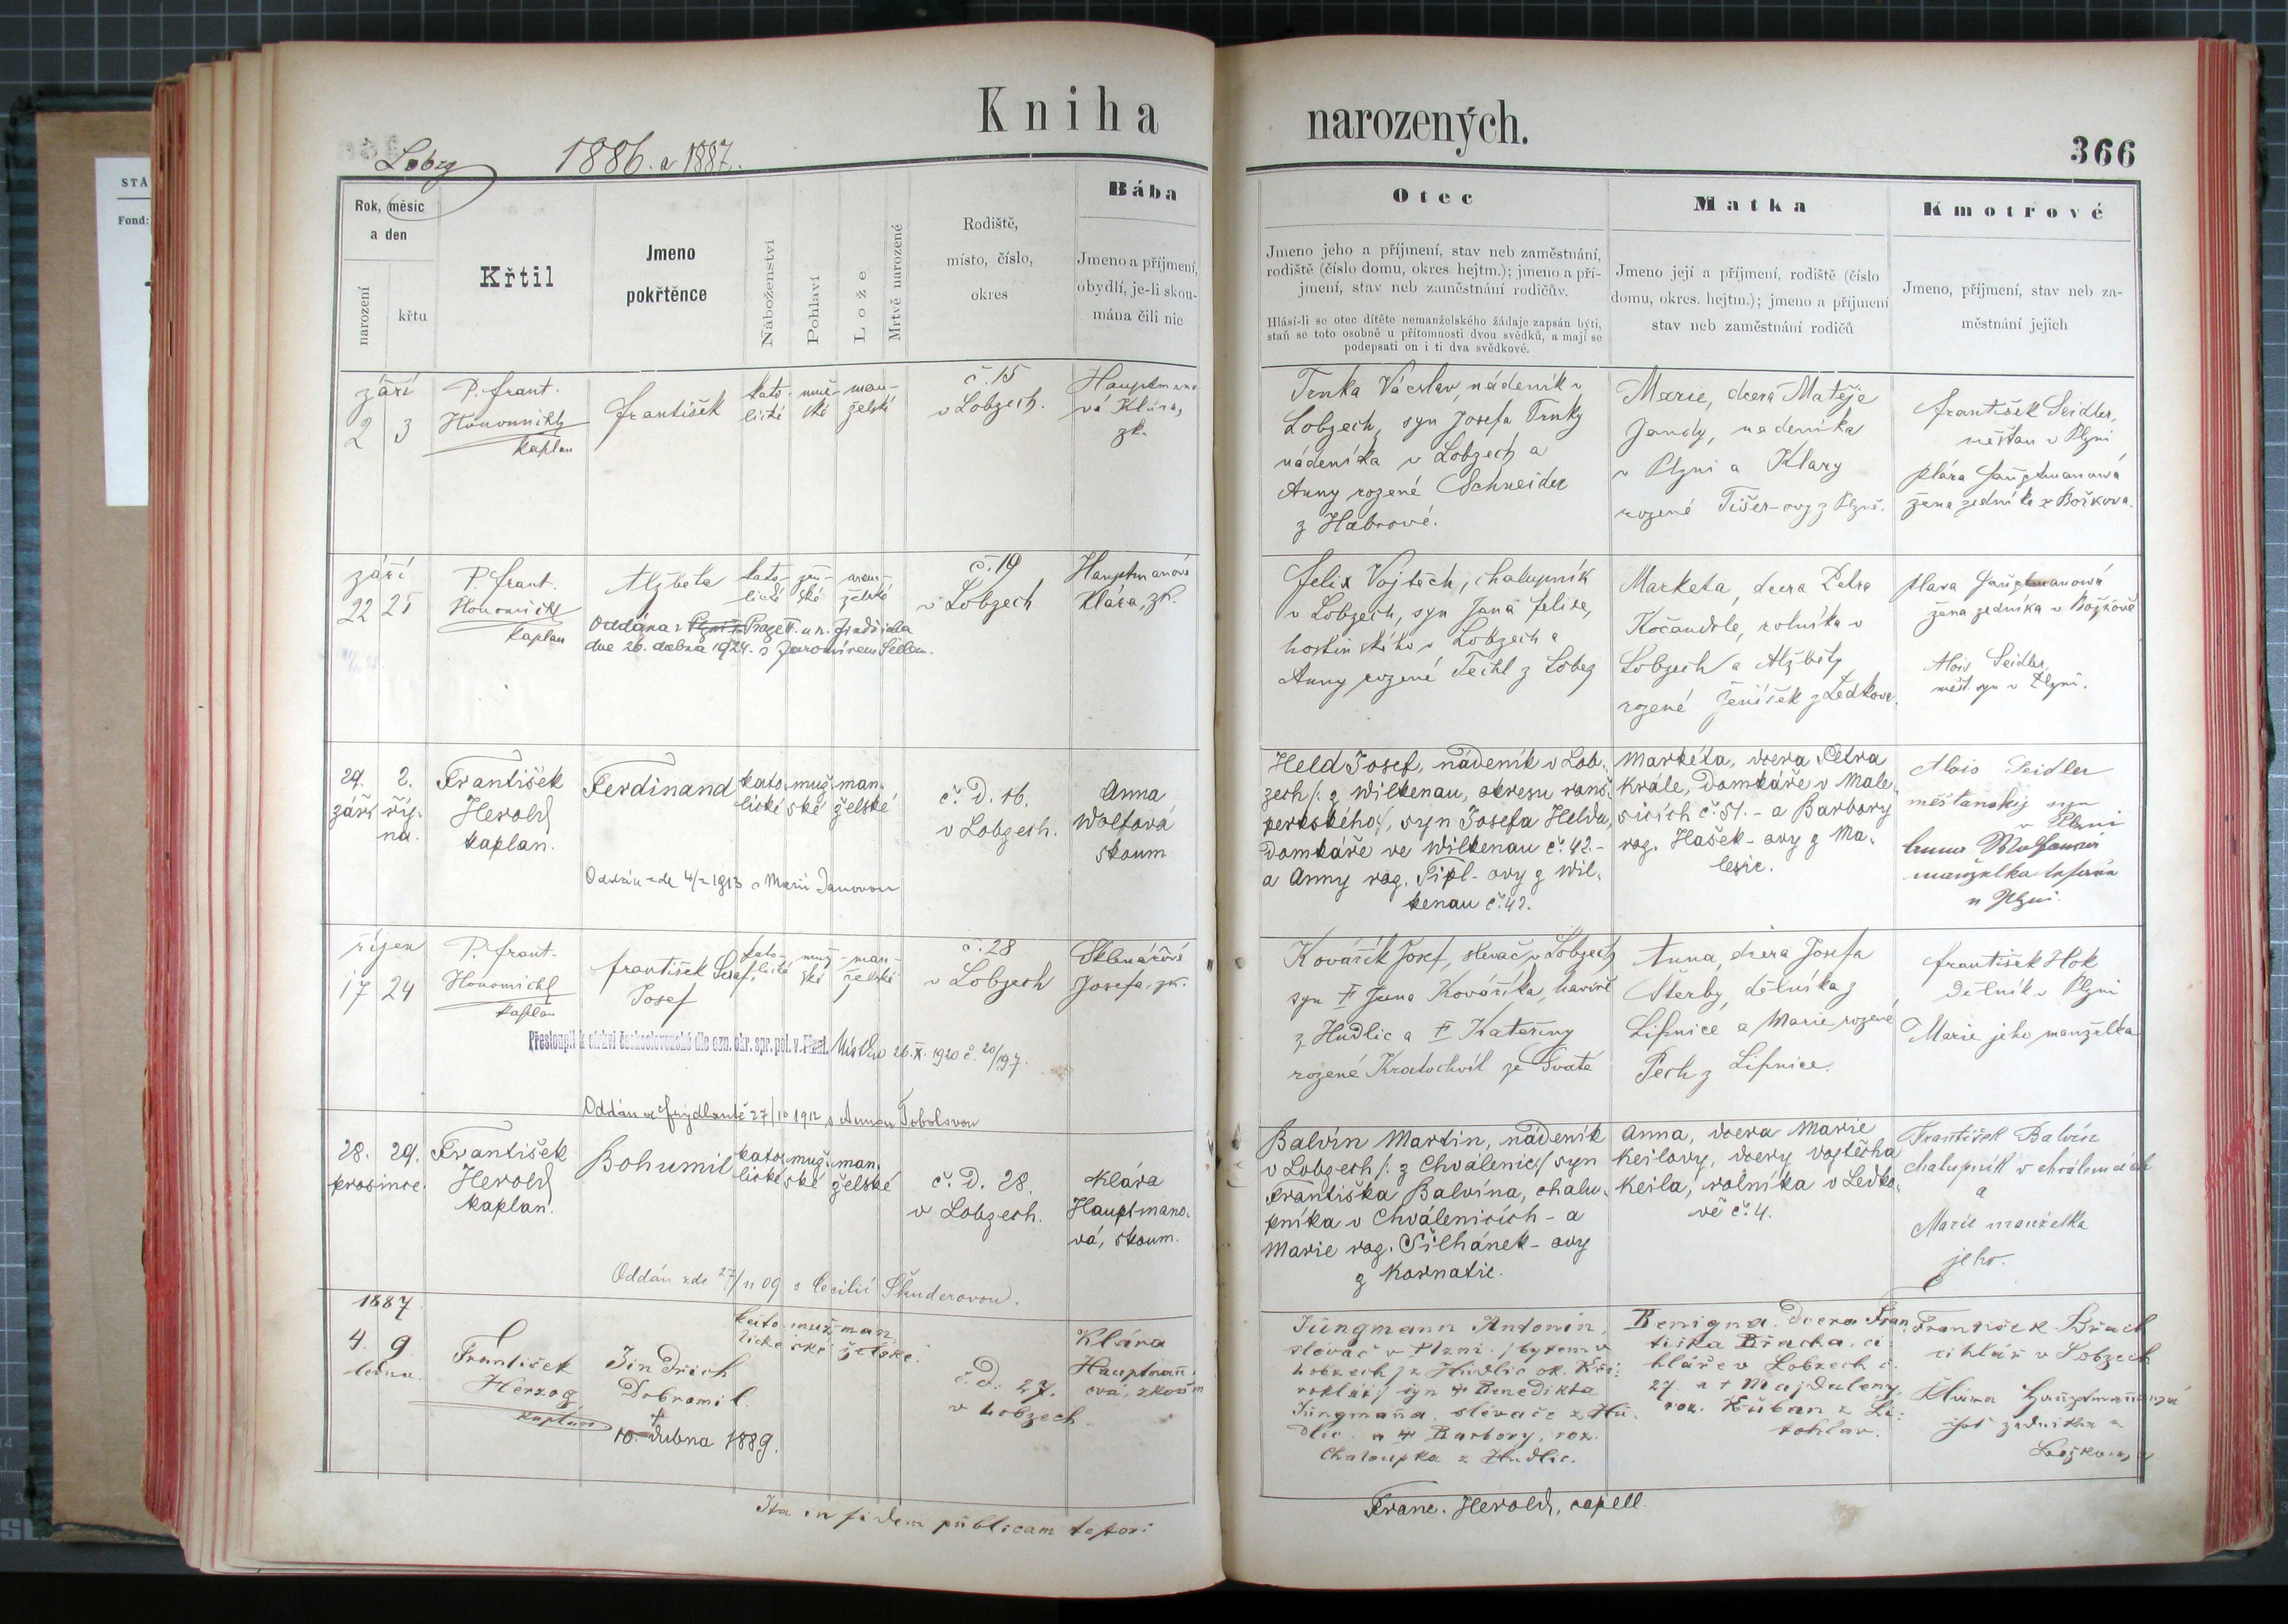 Kniha narozených.
366
Lobzy 1886. a 1887.
STÁ
Fond:
Rok, měsíc
a den
narození
křtu
Křtil
Jmeno
pokřtěnce
Náboženství
Pohlaví
Lože
Mrtvě narozené
Rodiště,
místo, číslo,
okres
Bába
Jmeno a příjmení,
obydlí, je-li skou-
mána čili nic
Otec
Jmeno jeho a příjmení, stav neb zaměstnání,
rodiště (číslo domu, okres hejtm.); jmeno a pří-
jmení, stav neb zaměstnání rodičův.
Hlásí-li se otec dítěte nemanželského žádaje zapsán býti,
staň se toto osobně u přítomnosti dvou svědků, a mají se
podepsati on i ti dva svědkové.
Matka
Jmeno její a příjmení, rodiště (číslo
domu, okres. hejtm.); jmeno a příjmení
stav neb zaměstnání rodičů
Kmotrové
Jmeno, příjmení, stav neb za-
městnání jejich
září
2 3
P. Frant.
Honomichl
kaplan
František
kato-
lické
muž-
ské
man-
želské
č. 15
v Lobzech.
Hauptmano
vá Klára,
zk.
Trnka Václav, nádeník v
Lobzech, syn Josefa Trnky
nádeníka v Lobzech a
Anny rozené Schneider
z Habrové.
Marie, dcera Matěje
Jandy, nadeníka
v Plzni a Klary
rozené Tišer-ovy z Plzně.
František Seidler,
měšťan v Plzni
Klára Hauptmanová
žena zedníka z Božkova.
září
22 25
P. Frant.
Honomichl
kaplan
Alžběta
kato-
lické
žen-
ské
man-
želské
Oddána v Praze II. u sv. Jindřicha
dne 26. dubna 1924. s Jaromírem
č. 19
v Lobzech
Hauptmanová
Klára, zk.
Felix Vojtěch, chalupník
v Lobzech, syn Jana Felixe,
hostinského v Lobzech a
Anny rozené Teichl z Lobez
Marketa, dcera Petra
Kočandrle, rolníka v
Lobzech a Alžběty
rozené Jeníšek z Ledkova.
Klara Hauptmanová
žena zedníka v Božkově
Alois Seidler,
měšť. syn v Plzni.
29. 2.
září říj-
na.
František
Herold
kaplan.
Ferdinand
kato-
lické
muž-
ské
man-
želské
Oddán zde 4/2 1913 s Marií Janovou
č. D. 16.
v Lobzech.
Anna
Wolfová
skoum
Held Josef, nádeník v Lob-
zech /: z Wilkenau, okresu ronš-
perkského:/, syn Josefa Helda,
domkáře ve Wilkenau č. 42. -
a Anny roz. Tipl-ovy z Wil-
kenau č. 42.
Markéta, dcera Petra
Krále, domkáře v Male-
sicích č. 51. - a Barbory
roz. Hašek-ovy z Ma-
lesic.
Alois Seidler
měšťanský syn
v Plzni
Anna Wolfová
manželka
v Plzni.
říjen
17 24
P. Frant.
Honomichl
kaplan
František Seraf.
Josef
kato-
lické
muž-
ské
man-
želské
Přestoupil k církvi československé dle ozn. okr. spr. pol. v Plzni. Místek 26. X. 1920 č. 20/197.
Oddán ve Frydlantě 27/10 1912 s Annou Tobolovou
č. 28
v Lobzech
Sklenářová
Josefa, zk.
Kovářík Josef, slevač v Lobzech
syn † Jana Kováříka, havíře
z Hudlic a † Kateřiny
rozené Kratochvíl ze Svaté
Anna, dcera Josefa
Šterby, dělníka z
Lipnice a Marie rozené
Pech z Lipnice.
František Hok
dělník v Plzni
Marie jeho manželka
28. 29.
prosince.
František
Herold
kaplan.
Bohumil
kato-
lické
muž-
ské
man-
želské
Oddán zde 27/11 09 s Cecilií Škuderovou.
č. D. 28.
v Lobzech.
Klára
Hauptmano-
vá, skoum.
Balvín Martin, nádeník
v Lobzech /: z Chválenic:/ syn
Františka Balvína, chalu-
pníka v Chválenicích - a
Marie roz. Šilhánek-ovy
z Kornatic.
Anna, dcera Marie
Keilovy, dcery Vojtěcha
Keila, rolníka v Ledko-
vě č. 4.
František Balvín
chalupník v Chválenicích
a
Marie manželka
jeho.
1887
4. 9
ledna.
František
Herzog
kaplan
Jindřich
Dobromil.
†
10. dubna 1889.
kato-
lické
muž-
ské
man-
želské
č. D. 27.
v Lobzech.
Klára
Hauptmann-
ová, zkoum
Jüngmann Antonín,
slevač v Plzni /: bytem v
Lobzech:/ z Hudlic ok. Kři-
voklát:/ syn † Benedikta
Jüngmanna, slévače z Hu-
dlic a † Barbory, roz.
Chaloupka z Hudlic.
Benigna, dcera Fran-
tiška Břacha, ci-
hláře v Lobzech č.
27. a † Majdaleny
roz. Kuban z Li-
tohlav.
František Břach
cihlář v Lobzech
Klára Hauptmannová
choť zedníka z
Božkova
Ita in fidem publicam testor:
Franc. Herold, capell.